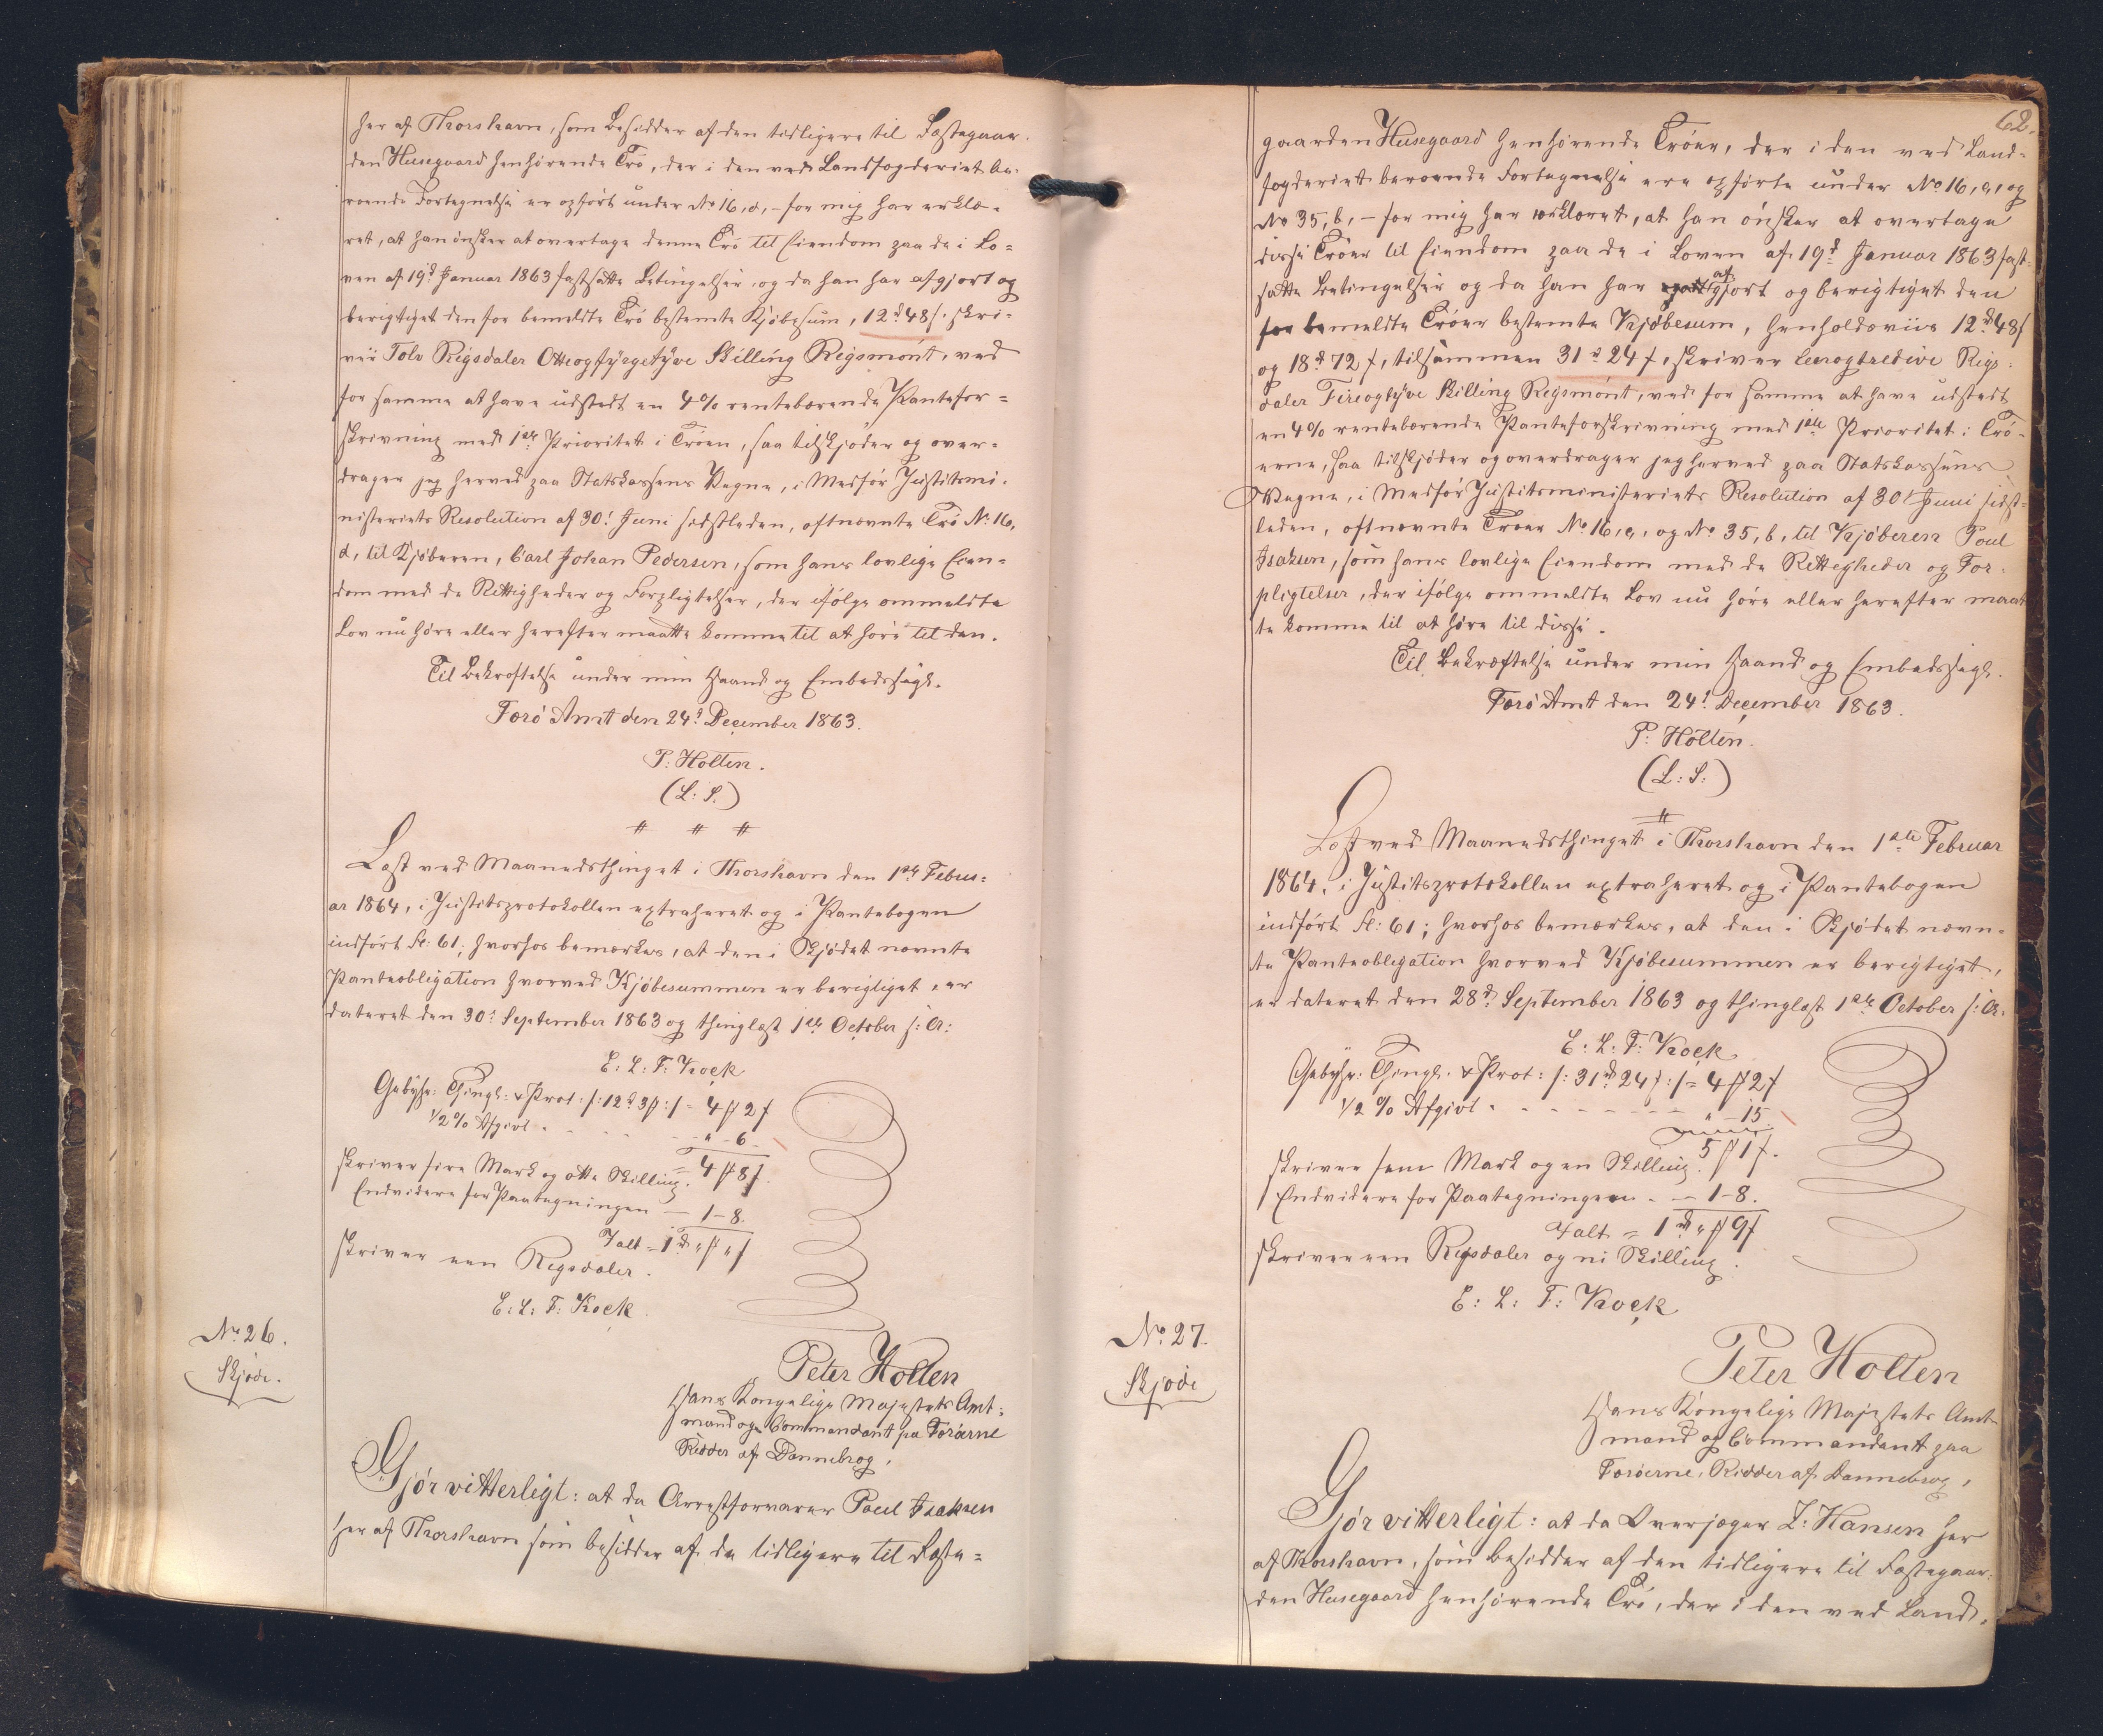 her af Thorshavn, som Besidder af den tidligere til Fæstegaar-
den Husegaard henhørende Trö, der i den ved Landfogderiet be-
roende Fortegnelse er opført under No 16, d, – for mig har erklæ-
ret, at han ønsker at overtage denne Trö til Eiendom paa de i Lo=
ven af 19d Januar 1863 fastsatte Betingelser, og da han har afgjort og
berigtiget den for bemeldte Trö bestemte Kjøbesum, 12 rd 48 s. skri-
ver Tolv Rigsdaler Otteogfyrgetyve Skilling Rigsmønt, ved
for samme at have udstedt en 4% rentebærende Pantefor=
skrivning med 1ste Prioritet i Tröen, saa tilskjøder og over=
drager jeg herved paa Statskassens Vegne, i Medfør Justitsmi-
nisteriets Resolution af 30t Juni sidstleden, oftnævnte Trö No 16,
d, til Kjøberen, Carl Johan Pedersen, som hans lovlige Eien=
dom med de Rettigheder og Forpligtelser, der ifølge ommeldte
Lov nu høre eller herefter maatte komme til at høre til den.
Til Bekræftelse under min Haand og Embedssegl.
Færø Amt den 24d December 1863.
P: Holten.
(L: S.)
# # #
Læst ved Maanedsthinget i Thorshavn den 1ste Febru=
ar 1864, i Justitsprotokollen extraheret og i Pantebogen
indført fol: 61; hvorhos bemærkes, at den i Skjødet nævnte
Panteobligation hvorved Kjøbesummen er berigtiget, er
dateret den 30d September 1863 og thinglæst 1ste October s: A:
E: L: F: Kock
Gebyhr: Thingl: & Prot: /: 12 rd 3 # :/ = 4 # 2 s
1/2 % Afgivt . . . . " – 6.
= 4 # 8 s.
skriver fire Mark og otte Skilling.
Endvidere for Paategningen — 1–8.
Ialt = 1 rd " # " s
skriver een Rigsdaler.
E: L: F: Kock.
No 26.
Skjøde.
Peter Holten
Hans Kongelige Majestets Amt=
mand og Commandant paa Færøerne
Ridder af Dannebrog,
Gjør vitterligt: at da Arrestforvarer Poul Isaksen
her af Thorshavn som besidder af de tidligere til Fæste=
62.
gaarden Husegaard henhørende Tröer, der i den ved Land=
fogderiet beroende Fortegnelse ere opførte under No 16, e, og
No 35, b, – for mig har erklæret, at han ønsker at overtage
disse Tröer til Eiendom paa de i Loven af 19d Januar 1863 fast-
satte Betingelser og da han har afgjort og berigtiget den
for bemeldte Tröer bestemte Kjøbesum, henholdsviis 12 rd 48 s
og 18 rd 72 s, tilsammen 31 rd 24 s, skriver Eenogtredive Rigs-
daler Fireogtyve Skilling Rigsmønt, ved for samme at have udstedt
en 4% rentebærende Panteforskrivning med 1ste Prioritet i Trö-
erne, saa tilskjøder og overdrager jeg herved paa Statskassens
Vegne, i Medfør Justitsministeriets Resolution af 30t Juni sidst=
leden, oftnævnte Tröer No 16, e, og No 35, b, til Kjøberen Poul
Isaksen, som hans lovlige Eiendom med de Rettigheder og For-
pligtelser, der ifølge ommeldte Lov nu høre eller herefter maat
te komme til at høre til disse.
Til Bekræftelse under min Haand og Embedssegl.
Færø Amt den 24d December 1863.
P: Holten.
(L: S:)
#
Læst ved Maanedsthinget i Thorshavn den 1ste Februar
1864, i Justitsprotokollen extraheret og i Pantebogen
indført fol: 61; hvorhos bemærkes, at den i Skjødet nævn-
te Panteobligation hvorved Kjøbesummen er berigtiget,
er dateret den 28d September 1863 og thinglæst 1ste October s: A.
E: L: F: Kock
Gebyhr: Thingl: & Prot: /: 31 rd 24 s :/ = 4 # 2 s
1/2 % Afgivt . - - - - - - - " – 15.
5 # 1 s.
skriver fem Mark og en Skilling.
Endvidere for Paategningen . – – 1–8.
Ialt = 1 rd " # 9 s
skriver een Rigsdaler og ni Skilling.
E: L: F: Kock
No 27.
Skjøde
Peter Holten
Hans Kongelige Majestets Amt-
mand og Commandant paa
Færøerne, Ridder af Dannebrog,
Gjør vitterligt: at da Overjæger Z: Hansen her
af Thorshavn, som Besidder af den tidligere til Fæstegaar-
den Husegaard henhørende Trö, der i den ved Land=